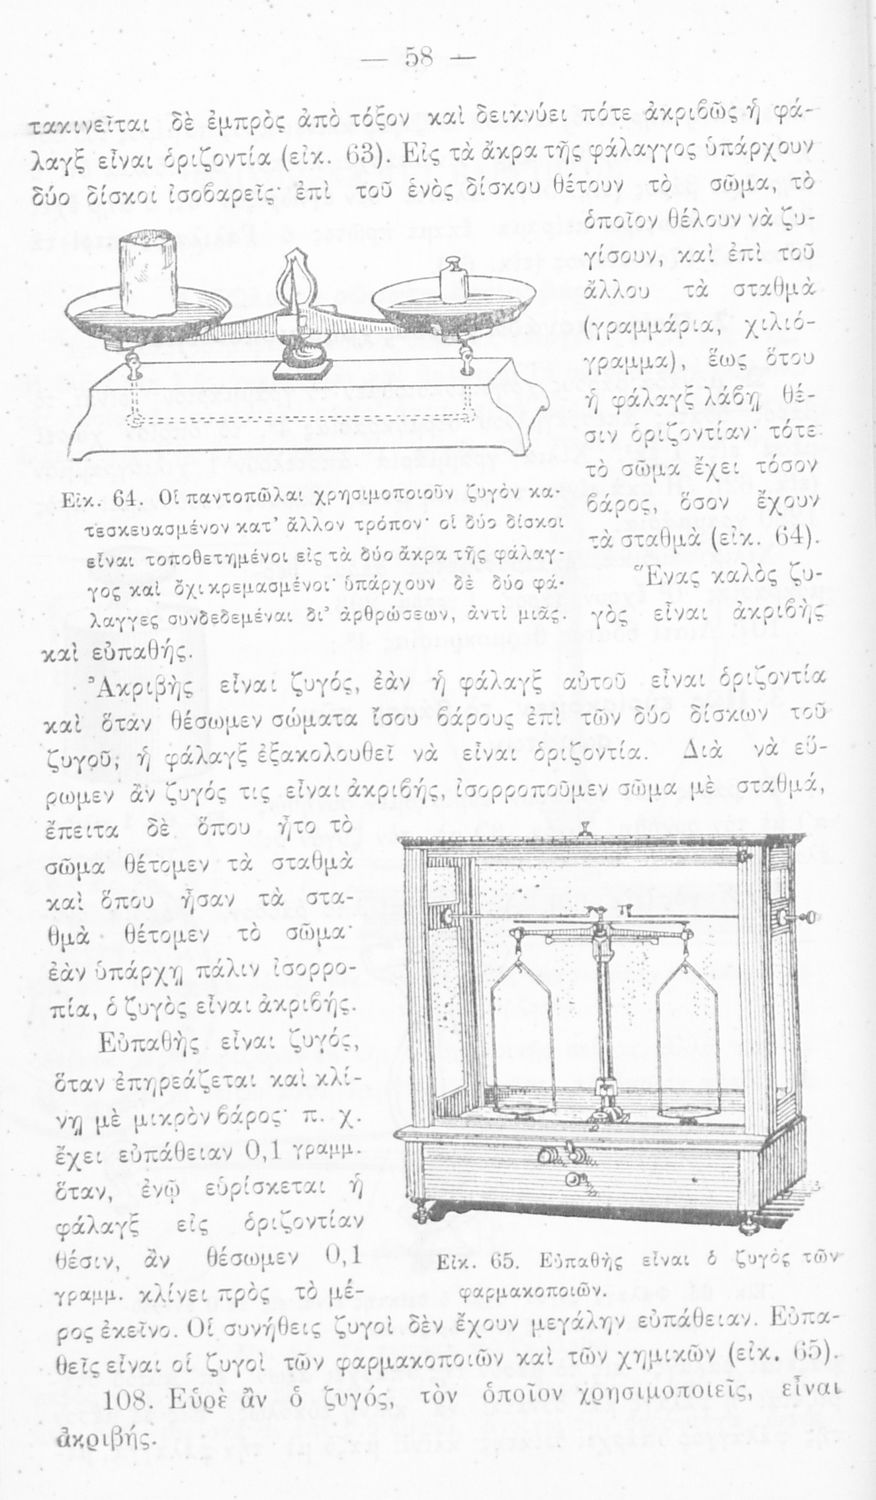 — 58 —
τακινεῖται δὲ ἐμπρὸς ἀπὸ τόξον καὶ δεικνύει πότε ἀκριβῶς ἡ φά-
λαγξ εἶναι ὁριζοντία (εἰκ. 63). Εἰς τὰ ἄκρα τῆς φάλαγγος ὑπάρχουν
δύο δίσκοι ἰσοβαρεῖς· ἐπὶ τοῦ ἑνὸς δίσκου θέτουν τὸ σῶμα, τὸ
ὁποῖον θέλουν νὰ ζυ-
γίσουν, καὶ ἐπὶ τοῦ
ἄλλου τὰ σταθμὰ
(γραμμάρια, χιλιό-
γραμμα), ἕως ὅτου
ἡ φάλαγξ λάβῃ θέ-
σιν ὁριζοντίαν· τότε
τὸ σῶμα ἔχει τόσον
βάρος, ὅσον ἔχουν
τὰ σταθμὰ (εἰκ. 64).
Ἕνας καλὸς ζυ-
γὸς εἶναι ἀκριβὴς
Εἰκ. 64. Οἱ παντοπῶλαι χρησιμοποιοῦν ζυγὸν κα-
τεσκευασμένον κατ’ ἄλλον τρόπον· οἱ δύο δίσκοι
εἶναι τοποθετημένοι εἰς τὰ δύο ἄκρα τῆς φάλαγ-
γος καὶ ὄχι κρεμασμένοι· ὑπάρχουν δὲ δύο φά-
λαγγες συνδεδεμέναι δι’ ἀρθρώσεων, ἀντὶ μιᾶς.
καὶ εὐπαθής.
Ἀκριβὴς εἶναι ζυγός, ἐὰν ἡ φάλαγξ αὐτοῦ εἶναι ὁριζοντία
καὶ ὅταν θέσωμεν σώματα ἴσου βάρους ἐπὶ τῶν δύο δίσκων τοῦ
ζυγοῦ, ἡ φάλαγξ ἐξακολουθεῖ νὰ εἶναι ὁριζοντία. Διὰ νὰ εὕ-
ρωμεν ἂν ζυγός τις εἶναι ἀκριβής, ἰσορροποῦμεν σῶμα μὲ σταθμά,
ἔπειτα δὲ ὅπου ἦτο τὸ
σῶμα θέτομεν τὰ σταθμὰ
καὶ ὅπου ἦσαν τὰ στα-
θμὰ θέτομεν τὸ σῶμα·
ἐὰν ὑπάρχῃ πάλιν ἰσορρο-
πία, ὁ ζυγὸς εἶναι ἀκριβής.
Εὐπαθὴς εἶναι ζυγός,
ὅταν ἐπηρεάζεται καὶ κλί-
νῃ μὲ μικρὸν βάρος· π. χ.
ἔχει εὐπάθειαν 0,1 γραμμ.
ὅταν, ἐνῷ εὑρίσκεται ἡ
φάλαγξ εἰς ὁριζοντίαν
θέσιν, ἂν θέσωμεν 0,1
γραμμ. κλίνει πρὸς τὸ μέ-
Εἰκ. 65. Εὐπαθὴς εἶναι ὁ ζυγὸς τῶν
φαρμακοποιῶν.
ρος ἐκεῖνο. Οἱ συνήθεις ζυγοὶ δὲν ἔχουν μεγάλην εὐπάθειαν. Εὐπα-
θεῖς εἶναι οἱ ζυγοὶ τῶν φαρμακοποιῶν καὶ τῶν χημικῶν (εἰκ. 65).
108. Εὑρὲ ἂν ὁ ζυγός, τὸν ὁποῖον χρησιμοποιεῖς, εἶναι
ἀκριβής.